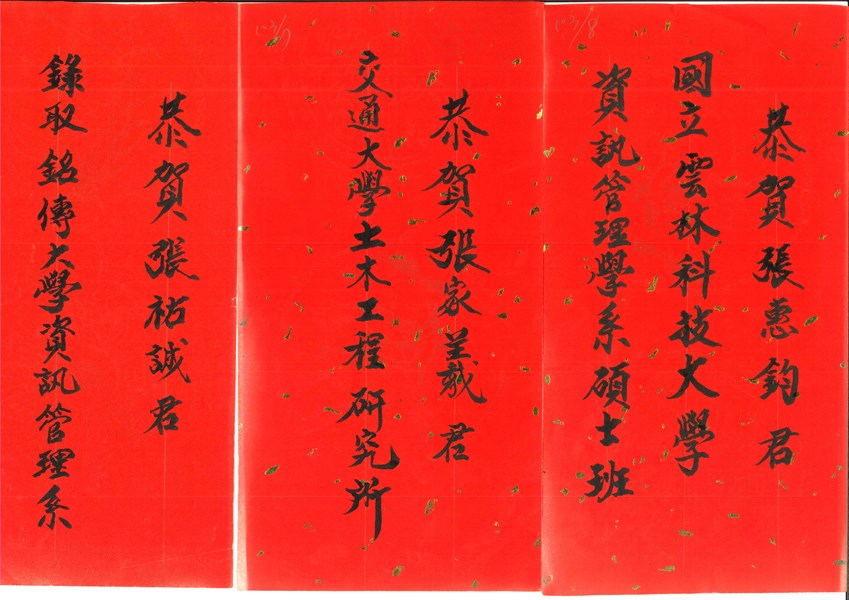 恭賀張惠鈞君
國立雲林科技大學
資訊管理學系碩士班
103/8
恭賀張家載君
交通大學土木工程研究所
103/7
恭賀張祐誠君
錄取銘傳大學資訊管理系